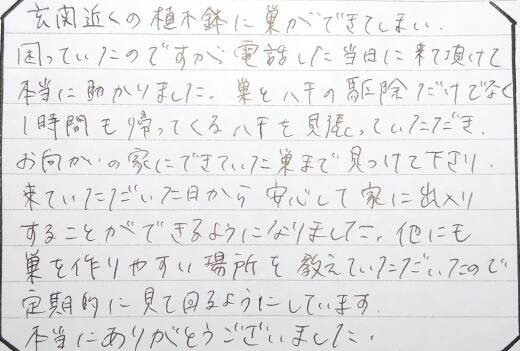 玄関近くの植木鉢に巣ができてしまい、
困っていたのですが電話した当日に来て頂けて
本当に助かりました。巣とハチの駆除だけでなく
1時間も帰ってくるハチを見張っていただき、
お向かいの家にできていた巣まで見つけて下さり、
来ていただいた日から安心して家に出入り
することができるようになりました。他にも
巣を作りやすい場所を教えていただいたので
定期的に見て回るようにしています。
本当にありがとうございました。